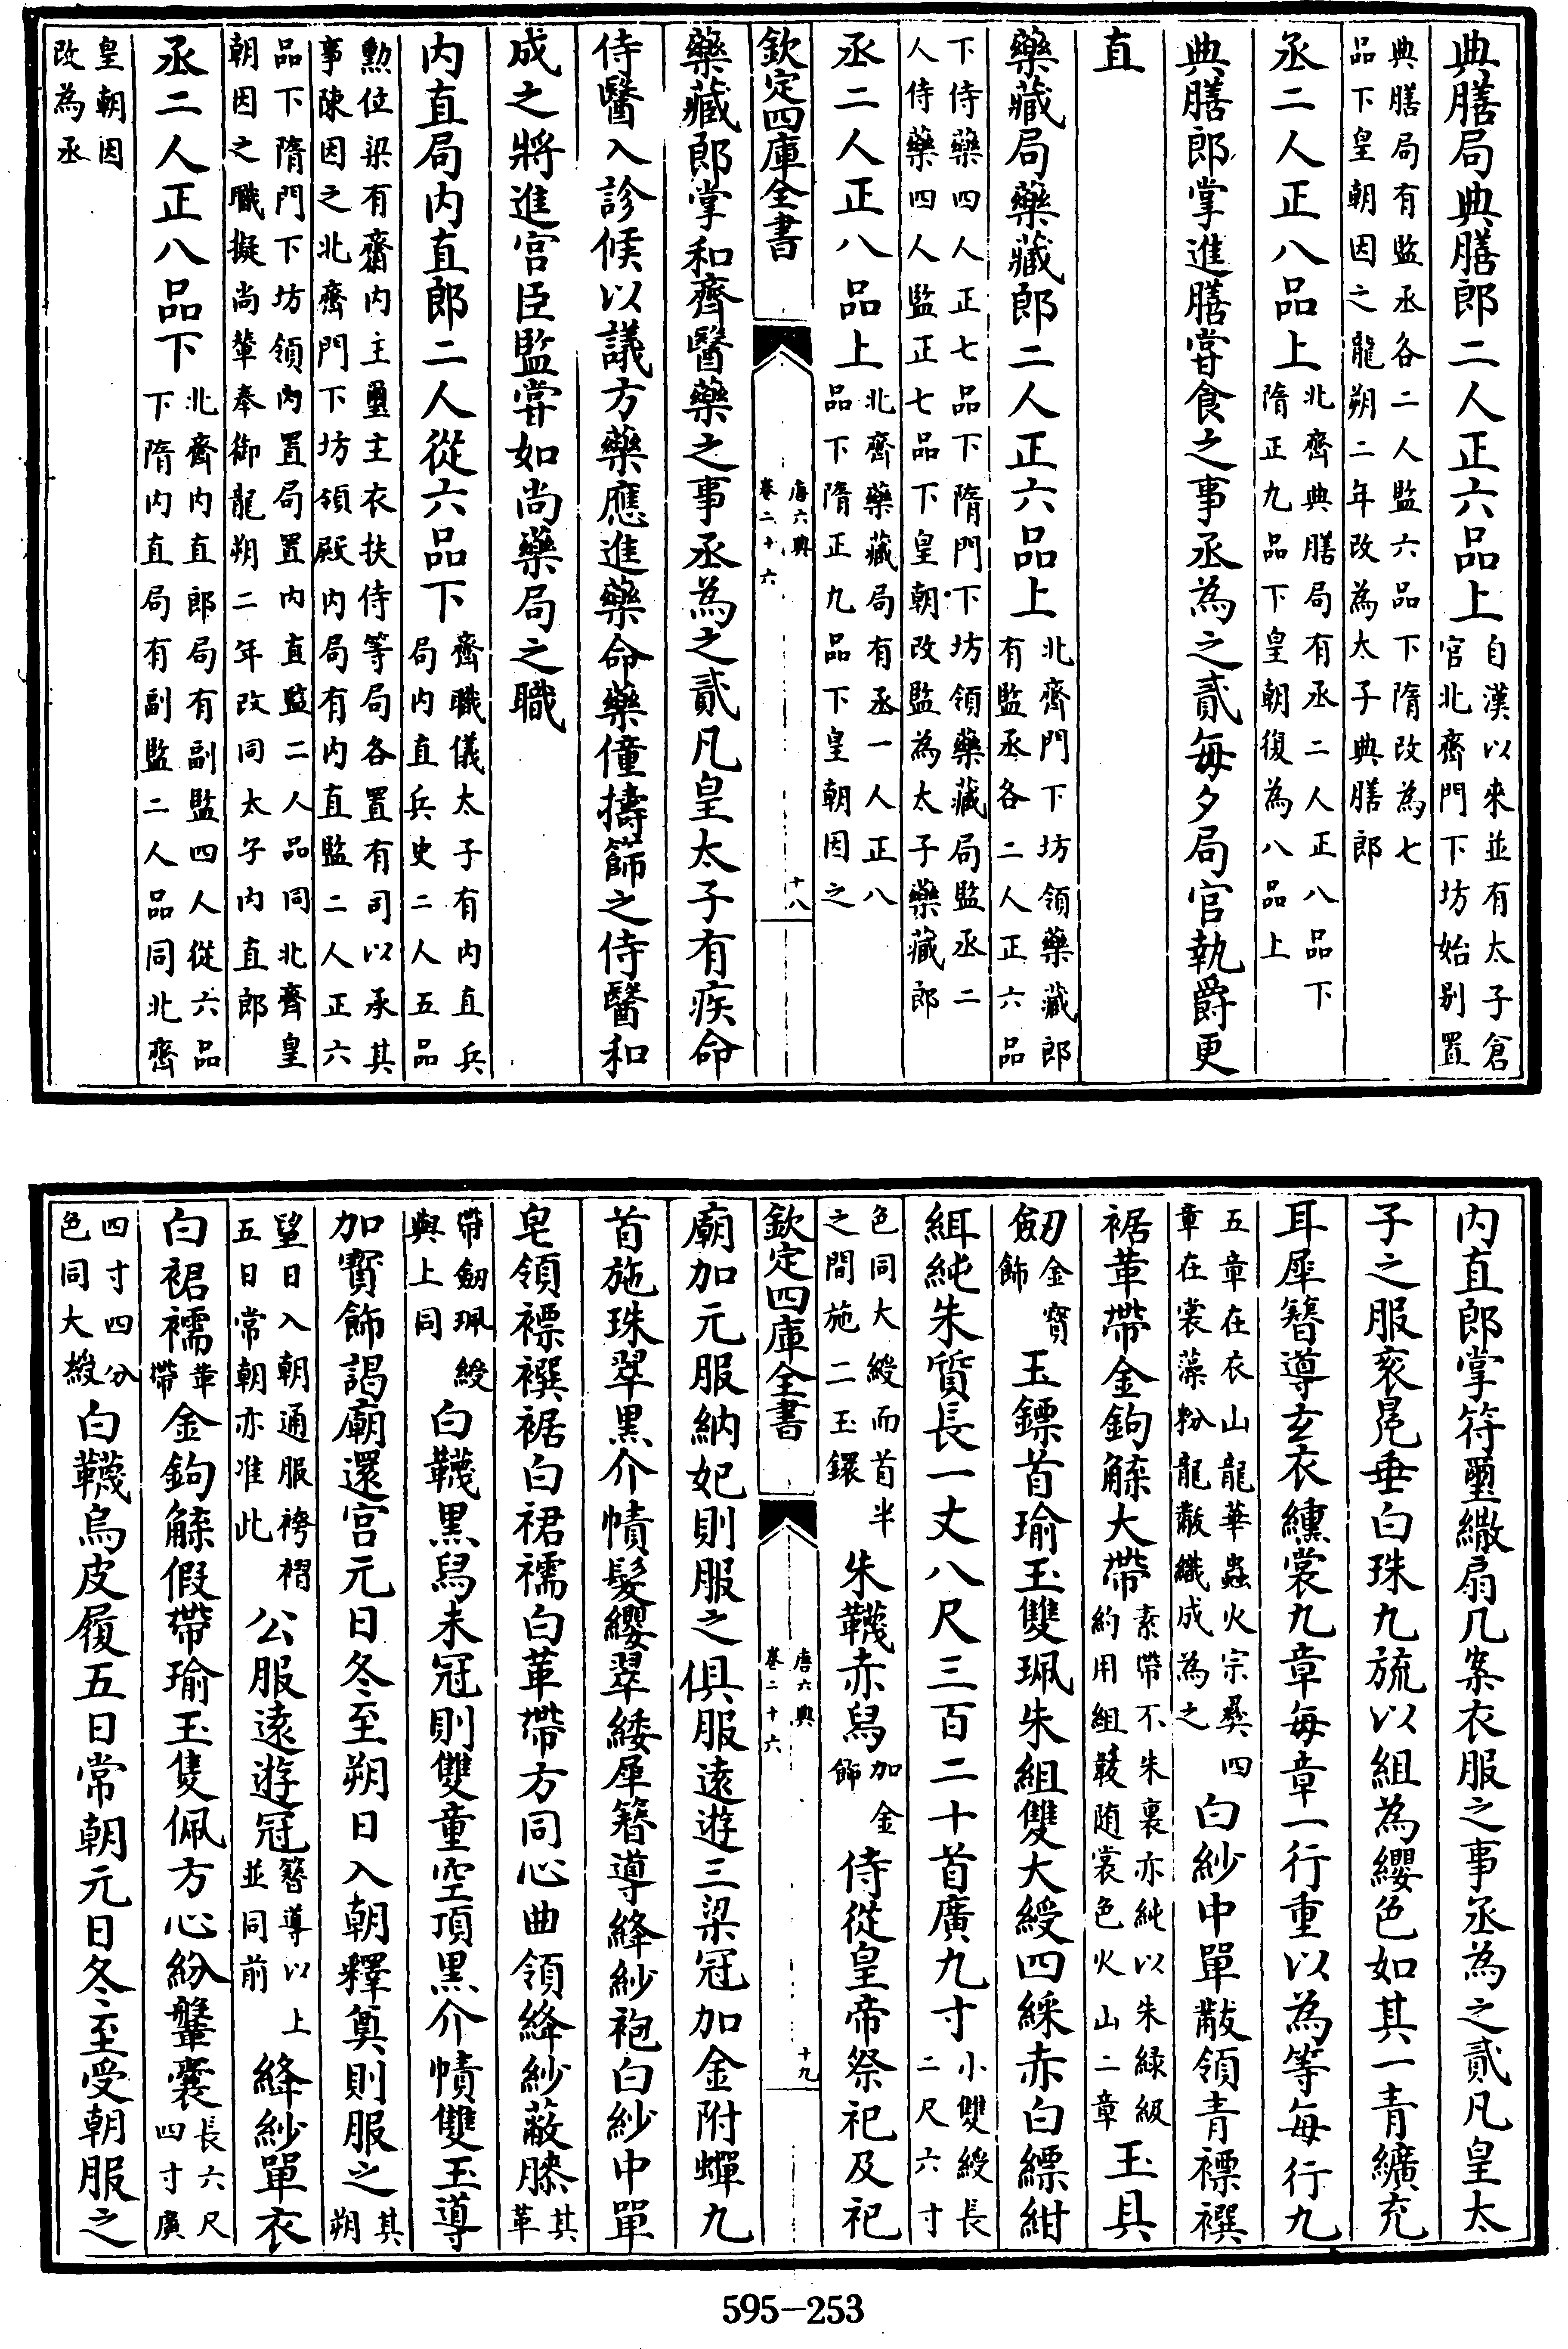 典膳局典膳郎二人正六品上自漢以來並有太子倉官北齊門下坊始别置
典膳局有監丞各二人監六品下隋改為七品下皇朝因之龍朔二年改為太子典膳郎
丞二人正八品上北齊典膳局有丞二人正八品下隋正九品下皇朝復為八品上
典膳郎掌進膳嘗食之事丞為之貳每夕局官執爵更
直
藥藏局藥藏郎二人正六品上北齊門下坊領藥藏郎有監丞各二人正六品
下侍藥四人正七品下隋門下坊領藥藏局監丞二人侍藥四人監正七品下皇朝改監為太子藥藏郎
丞二人正八品上北齊藥藏局有丞一人正八品下隋正九品下皇朝因之
欽定四庫全書
唐六典
卷二十六
十八
藥藏郎掌和齊醫藥之事丞為之貳凡皇太子有疾命
侍醫入診候以議方藥應進藥命藥僮擣篩之侍醫和
成之將進宫臣監嘗如尚藥局之職
内直局内直郎二人從六品下齊職儀太子有内直兵局内直兵史二人五品
勲位梁有齋内主璽主衣扶侍等局各置有司以承其事陳因之北齊門下坊領殿内局有内直監二人正六
品下隋門下坊領内直局置内直監二人品同北齊皇朝因之職擬尚輦奉御龍朔二年改同太子内直郎
丞二人正八品下北齊内直郎局有副監四人從六品下隋内直局有副監二人品同北齊
皇朝因改為丞
内直郎掌符璽繖扇几案衣服之事丞為之貳凡皇太
子之服衮冕垂白珠九旒以組為纓色如其一青纊充
耳犀簪導玄衣纁裳九章每章一行重以為等每行九
五章在衣山龍華蟲火宗彝四章在裳藻粉龍黻織成為之白紗中單黻領青褾襈
裾革帶金鉤䚢大帶素帶不朱裏亦純以朱緑級約用組韍随裳色火山二章玉具
劒金寳飾玉鏢首瑜玉雙珮朱組雙大綬四綵赤白縹紺
組純朱質長一丈八尺三百二十首廣九寸小雙綬長二尺六寸
色同大綬而首半之間施二玉鐶朱韈赤舄加金飾侍從皇帝祭祀及祀
欽定四庫全書
唐六典
卷二十六
十九
廟加元服納妃則服之俱服逺遊三梁冠加金附蟬九
首施珠翠黑介幘髮纓翠緌犀簪導絳紗袍白紗中單
皂領褾襈裾白裙襦白革帶方同心曲領絳紗蔽膝其革
帶劒珮綬與上同白韈黑舄未冠則雙童空頂黑介幘雙玉導
加寳飾謁廟還宫元日冬至朔日入朝釋奠則服之其朔
望日入朝通服袴褶五日常朝亦准此公服逺遊冠簪導以上並同前絳紗單衣
白裙襦革帶金鉤䚢假帶瑜玉隻佩方心紛鞶囊長六尺四寸廣
四寸四分色同大綬白韈烏皮履五日常朝元日冬至受朝服之
595-253